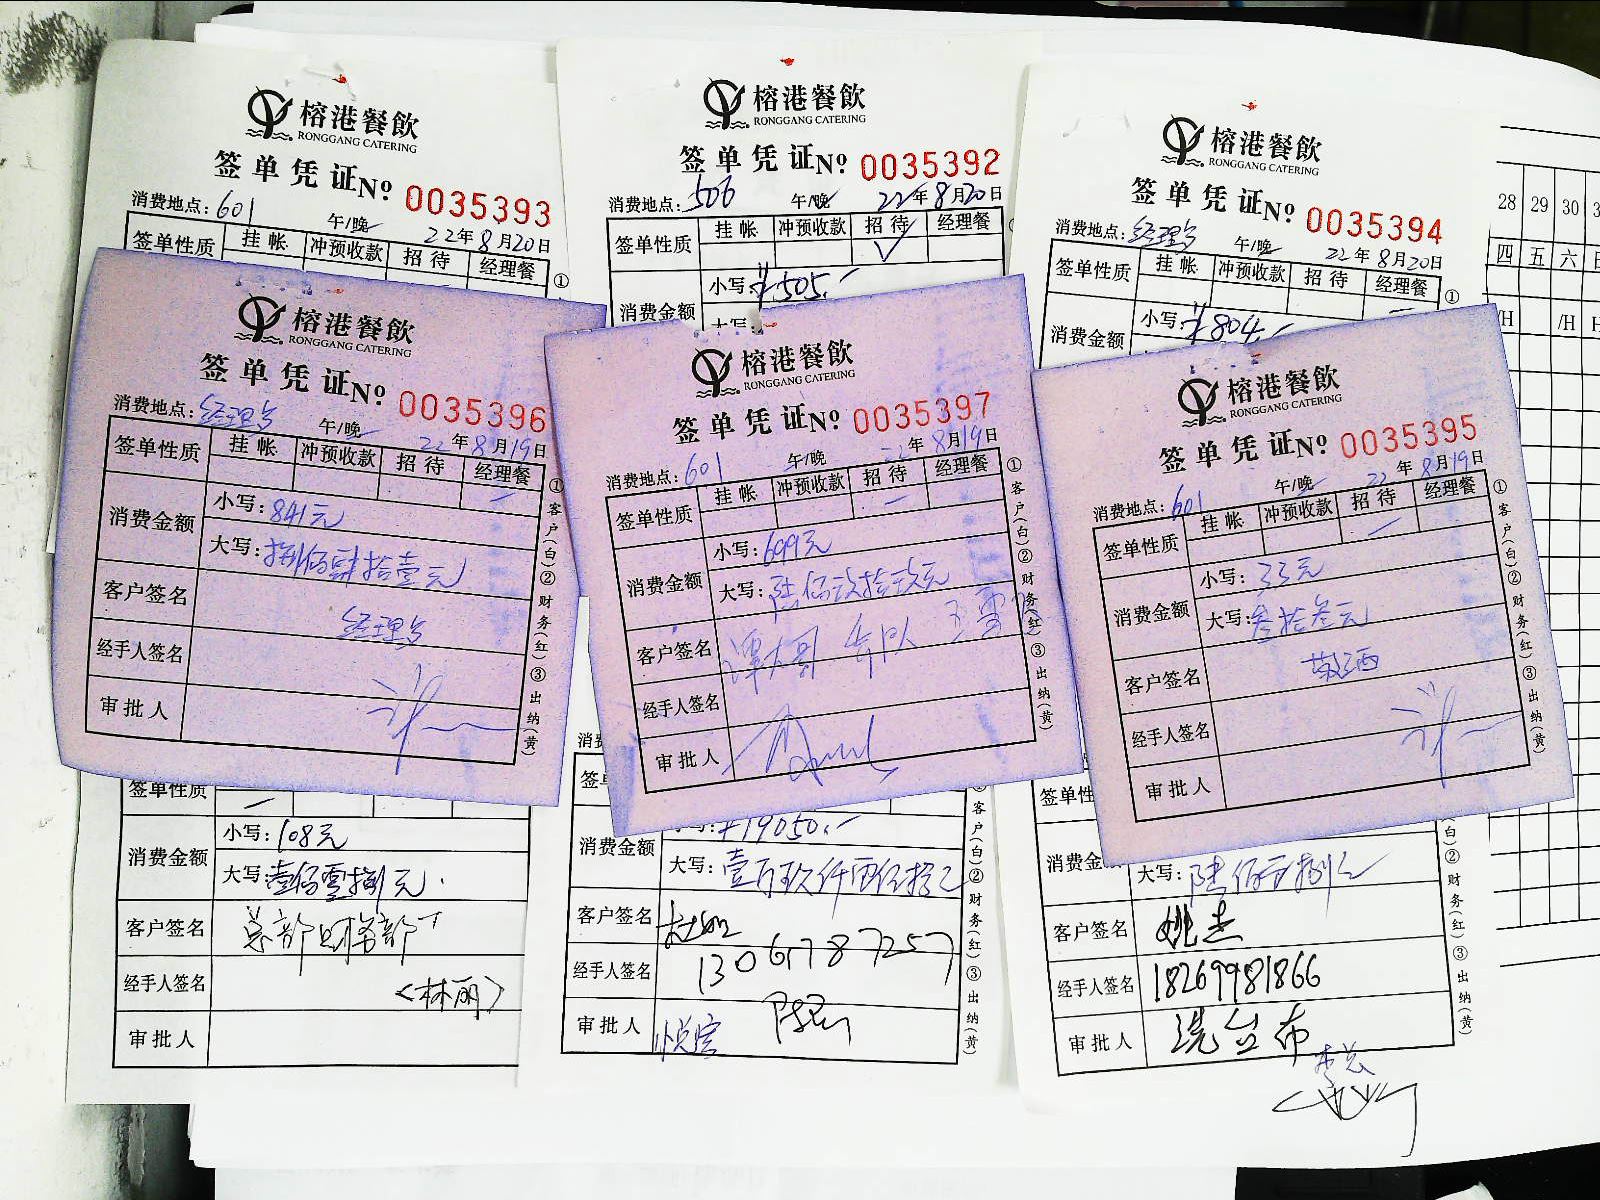 榕港餐飲
RONGGANG CATERING
签单凭证№ 0035393
消费地点：601 午/晚 22年8月20日
签单性质 挂帐 冲预收款 招待 经理餐
①
榕港餐飲
RONGGANG CATERING
签单凭证№ 0035392
消费地点：506 午/晚 22年8月20日
签单性质 挂帐 冲预收款 招待 经理餐
√
消费金额 小写：¥505.-
大写：
榕港餐飲
RONGGANG CATERING
签单凭证№ 0035394
消费地点：经理餐 午/晚 22年8月20日
签单性质 挂帐 冲预收款 招待 经理餐
①
消费金额 小写：¥804.-
28 29 30
四 五 六
/H /H
榕港餐飲
RONGGANG CATERING
签单凭证№ 0035396
消费地点：经理餐 午/晚 22年8月19日
签单性质 挂帐 冲预收款 招待 经理餐
消费金额 小写：841元
大写：捌佰肆拾壹元
客户签名 经理餐
经手人签名
审批人
①客户(白)②财务(红)③出纳(黄)
榕港餐飲
RONGGANG CATERING
签单凭证№ 0035397
消费地点：601 午/晚 22年8月19日
签单性质 挂帐 冲预收款 招待 经理餐
消费金额 小写：699元
大写：陆佰玖拾玖元
客户签名 谭大哥
经手人签名
审批人
①客户(白)②财务(红)③出纳(黄)
榕港餐飲
RONGGANG CATERING
签单凭证№ 0035395
消费地点：601 午/晚 22年8月19日
签单性质 挂帐 冲预收款 招待 经理餐
消费金额 小写：33元
大写：叁拾叁元
客户签名 敬酒
经手人签名
审批人
①客户(白)②财务(红)③出纳(黄)
签单性质
消费金额 小写：108元
大写：壹佰零捌元.
客户签名 总部财务部
经手人签名 （林丽）
审批人
消费金额 ¥19050.-
大写：
客户签名
经手人签名 13061787257
审批人
客户(白)②财务(红)③出纳(黄)
签单性质
消费金额
大写：陆佰
客户签名 姚杰
经手人签名 18269981866
审批人 洗台布
李总
(白)②财务(红)③出纳(黄)